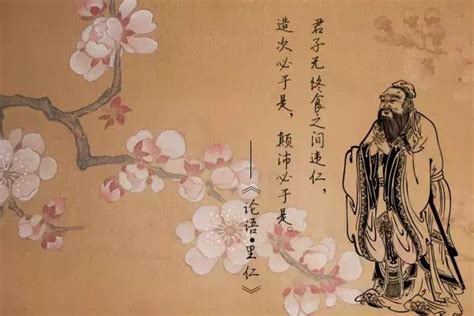 君子无终食之间违仁，
造次必于是，颠沛必于是。
——《论语·里仁》